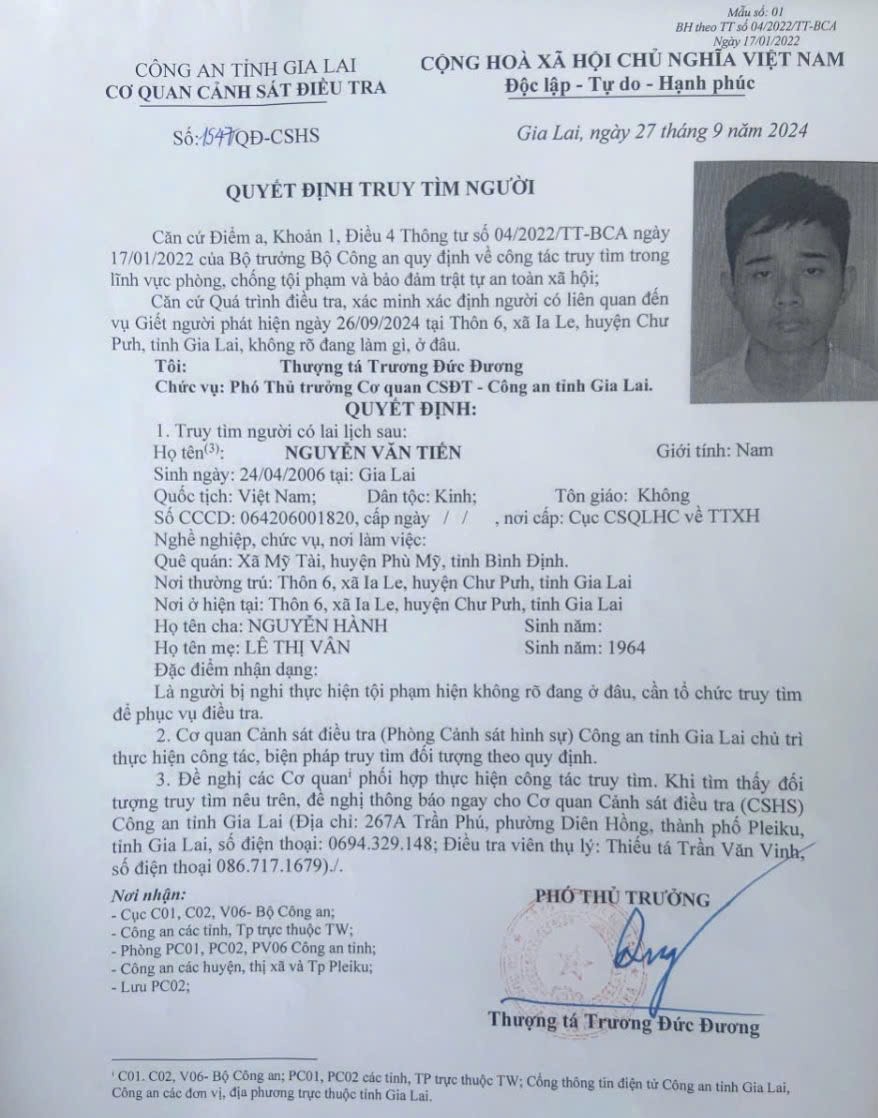 Mẫu số: 01
BH theo TT số 04/2022/TT-BCA
Ngày 17/01/2022
CÔNG AN TỈNH GIA LAI
CƠ QUAN CẢNH SÁT ĐIỀU TRA
CỘNG HOÀ XÃ HỘI CHỦ NGHĨA VIỆT NAM
Độc lập - Tự do - Hạnh phúc
Số: 1547/QĐ-CSHS
Gia Lai, ngày 27 tháng 9 năm 2024
QUYẾT ĐỊNH TRUY TÌM NGƯỜI
Căn cứ Điểm a, Khoản 1, Điều 4 Thông tư số 04/2022/TT-BCA ngày
17/01/2022 của Bộ trưởng Bộ Công an quy định về công tác truy tìm trong
lĩnh vực phòng, chống tội phạm và bảo đảm trật tự an toàn xã hội;
Căn cứ Quá trình điều tra, xác minh xác định người có liên quan đến
vụ Giết người phát hiện ngày 26/09/2024 tại Thôn 6, xã Ia Le, huyện Chư
Pưh, tỉnh Gia Lai, không rõ đang làm gì, ở đâu.
Tôi: Thượng tá Trương Đức Đương
Chức vụ: Phó Thủ trưởng Cơ quan CSĐT - Công an tỉnh Gia Lai.
QUYẾT ĐỊNH:
1. Truy tìm người có lai lịch sau:
Họ tên(3): NGUYỄN VĂN TIẾN Giới tính: Nam
Sinh ngày: 24/04/2006 tại: Gia Lai
Quốc tịch: Việt Nam; Dân tộc: Kinh; Tôn giáo: Không
Số CCCD: 064206001820, cấp ngày / / , nơi cấp: Cục CSQLHC về TTXH
Nghề nghiệp, chức vụ, nơi làm việc:
Quê quán: Xã Mỹ Tài, huyện Phù Mỹ, tỉnh Bình Định.
Nơi thường trú: Thôn 6, xã Ia Le, huyện Chư Pưh, tỉnh Gia Lai
Nơi ở hiện tại: Thôn 6, xã Ia Le, huyện Chư Pưh, tỉnh Gia Lai
Họ tên cha: NGUYỄN HÀNH Sinh năm:
Họ tên mẹ: LÊ THỊ VÂN Sinh năm: 1964
Đặc điểm nhận dạng:
Là người bị nghi thực hiện tội phạm hiện không rõ đang ở đâu, cần tổ chức truy tìm
để phục vụ điều tra.
2. Cơ quan Cảnh sát điều tra (Phòng Cảnh sát hình sự) Công an tỉnh Gia Lai chủ trì
thực hiện công tác, biện pháp truy tìm đối tượng theo quy định.
3. Đề nghị các Cơ quanⁱ phối hợp thực hiện công tác truy tìm. Khi tìm thấy đối
tượng truy tìm nêu trên, đề nghị thông báo ngay cho Cơ quan Cảnh sát điều tra (CSHS)
Công an tỉnh Gia Lai (Địa chỉ: 267A Trần Phú, phường Diên Hồng, thành phố Pleiku,
tỉnh Gia Lai, số điện thoại: 0694.329.148; Điều tra viên thụ lý: Thiếu tá Trần Văn Vinh,
số điện thoại 086.717.1679)./.
Nơi nhận:
- Cục C01, C02, V06- Bộ Công an;
- Công an các tỉnh, Tp trực thuộc TW;
- Phòng PC01, PC02, PV06 Công an tỉnh;
- Công an các huyện, thị xã và Tp Pleiku;
- Lưu PC02;
PHÓ THỦ TRƯỞNG
Thượng tá Trương Đức Đương
ⁱ C01. C02, V06- Bộ Công an; PC01, PC02 các tỉnh, TP trực thuộc TW; Cổng thông tin điện tử Công an tỉnh Gia Lai,
Công an các đơn vị, địa phương trực thuộc tỉnh Gia Lai.